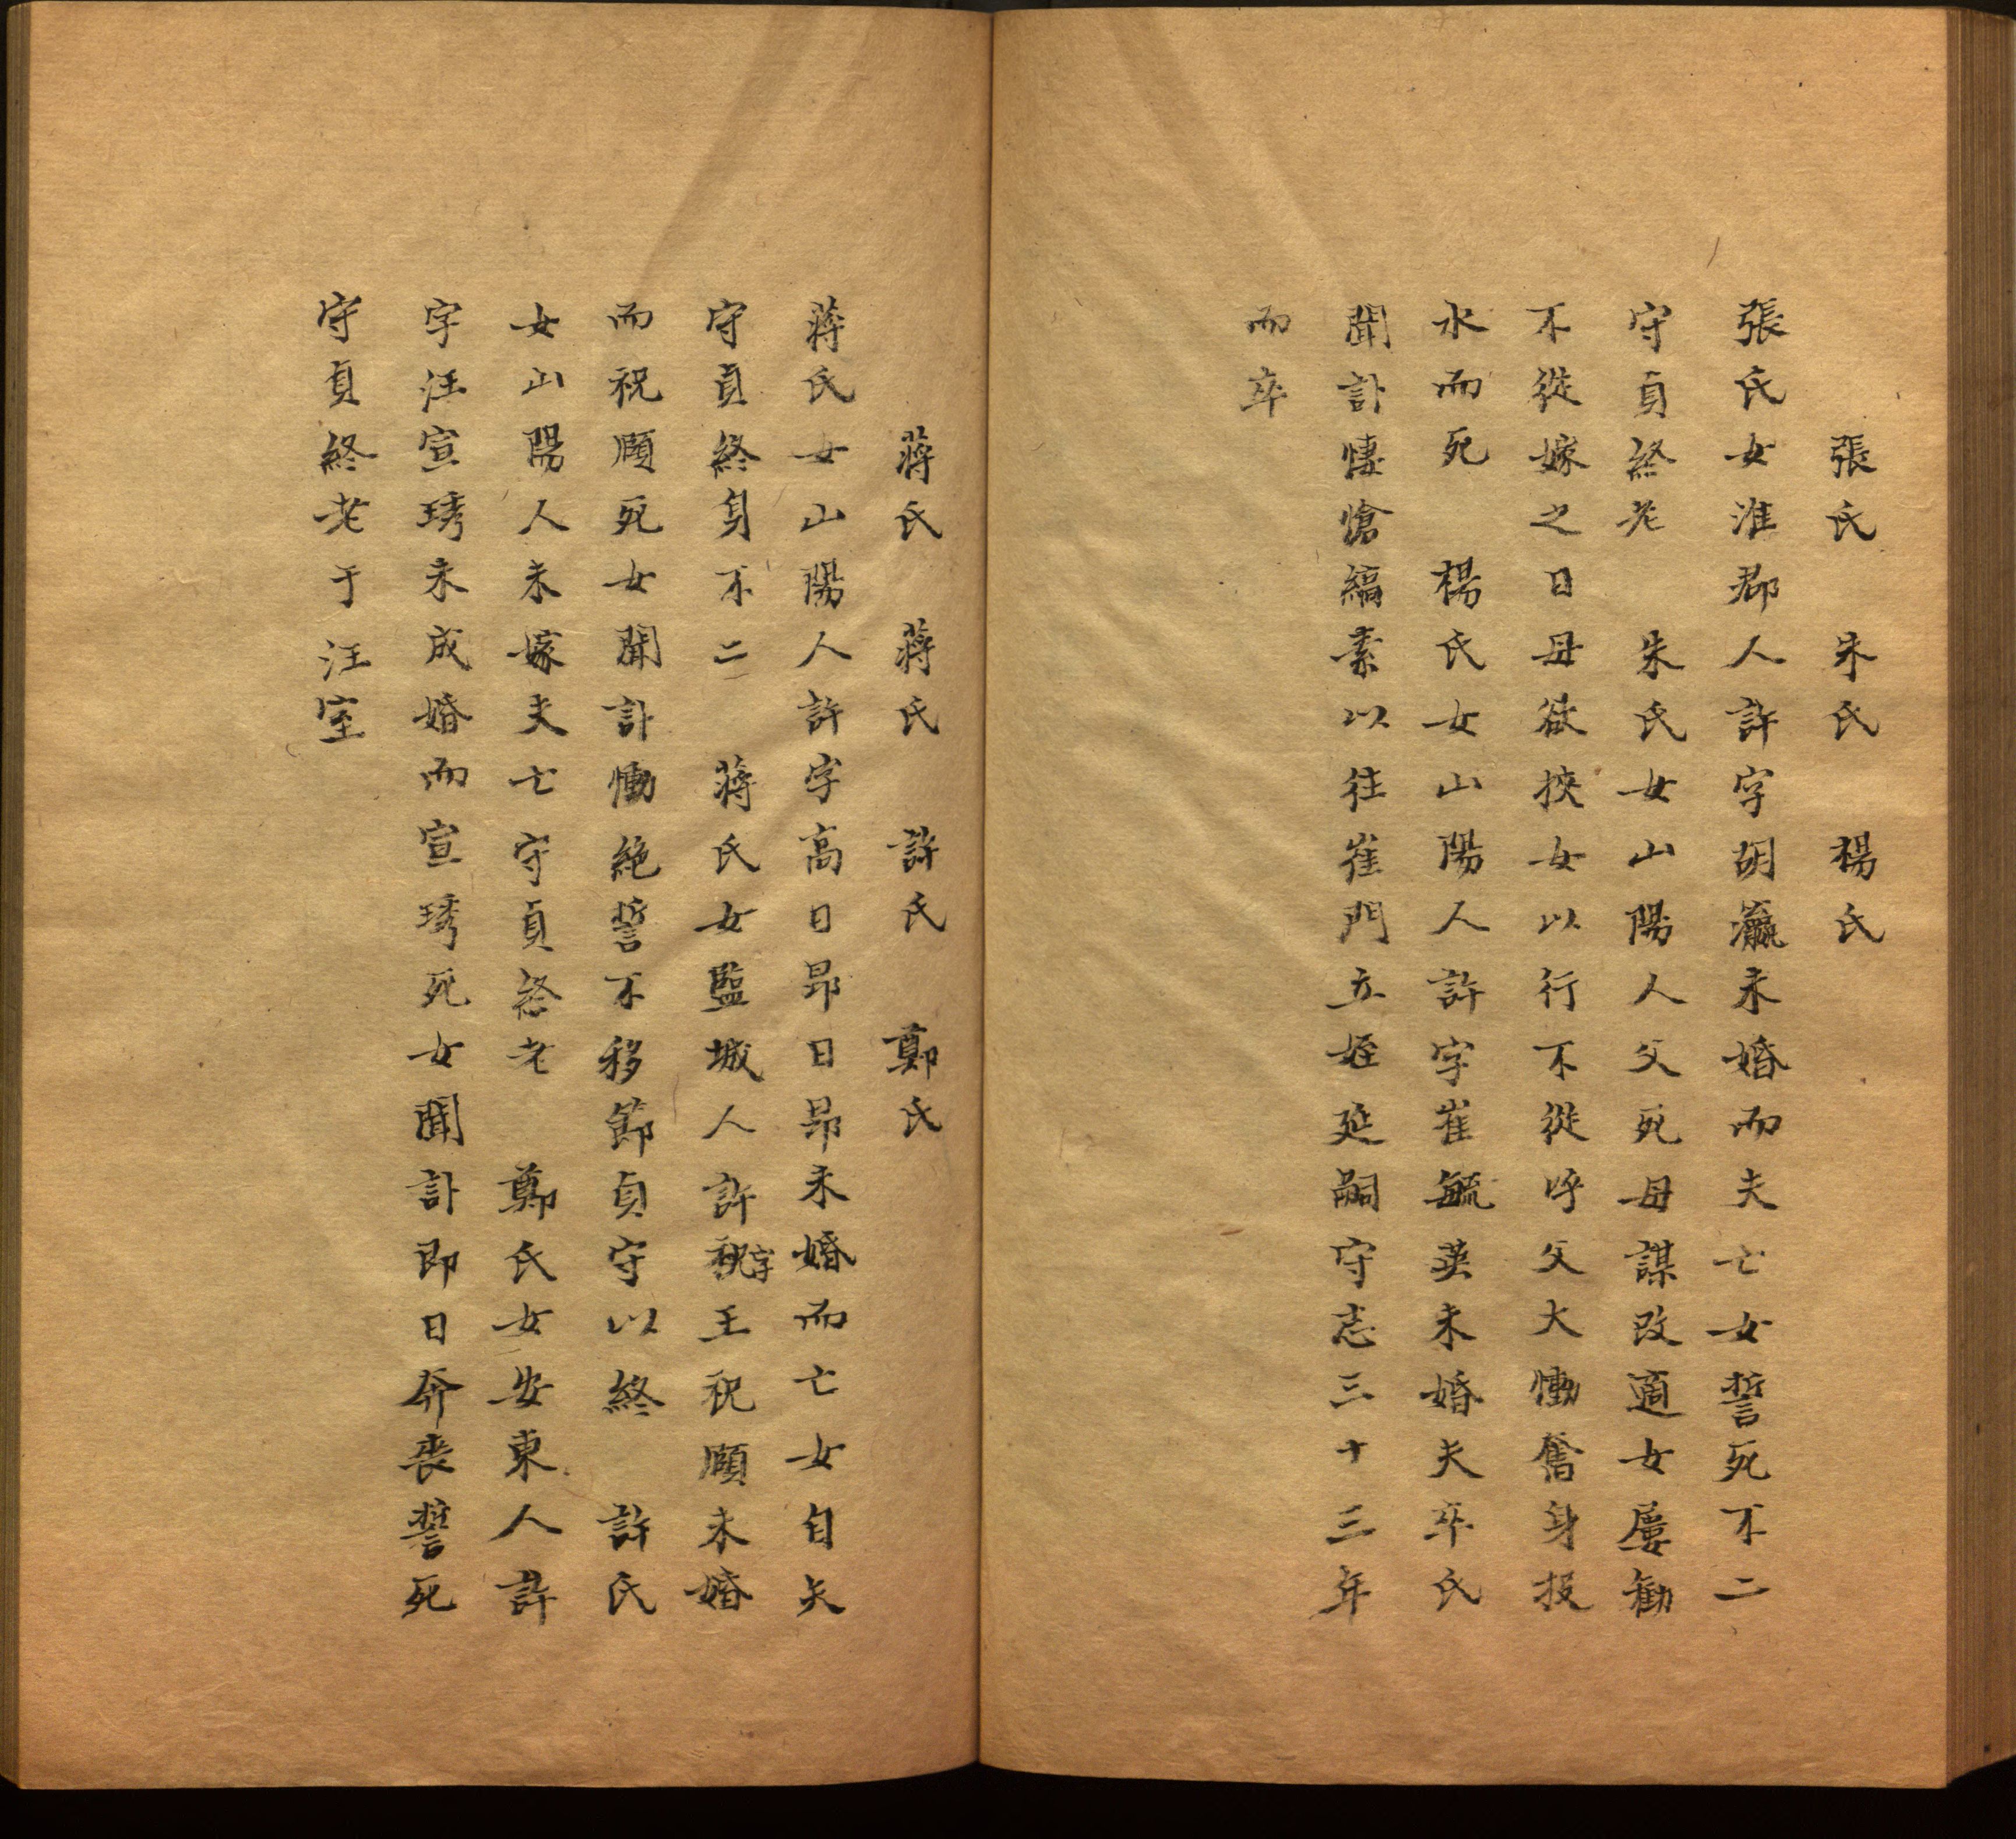 張氏　朱氏　楊氏
張氏女淮郡人許字胡瀛未婚而夫亡女誓死不二
守貞終老　朱氏女山陽人父死母謀改適女屢勸
不從嫁之日母欲挾女以行不從呼父大慟奮身投
水而死　楊氏女山陽人許字崔毓英未婚夫卒氏
聞訃悽愴縞素以往崔門立姪延嗣守志三十三年
而卒
蔣氏　蔣氏　許氏　鄭氏
蔣氏女山陽人許字高日昂日昂未婚而亡女自矢
守貞終身不二　蔣氏女監城人許字祝王祝頤未婚
而祝頤死女聞訃慟絶誓不移節貞守以終　許氏
女山陽人未嫁夫亡守貞終老　鄭氏女安東人許
字汪宣琇未成婚而宣琇死女聞訃即日奔喪誓死
守貞終老于汪室